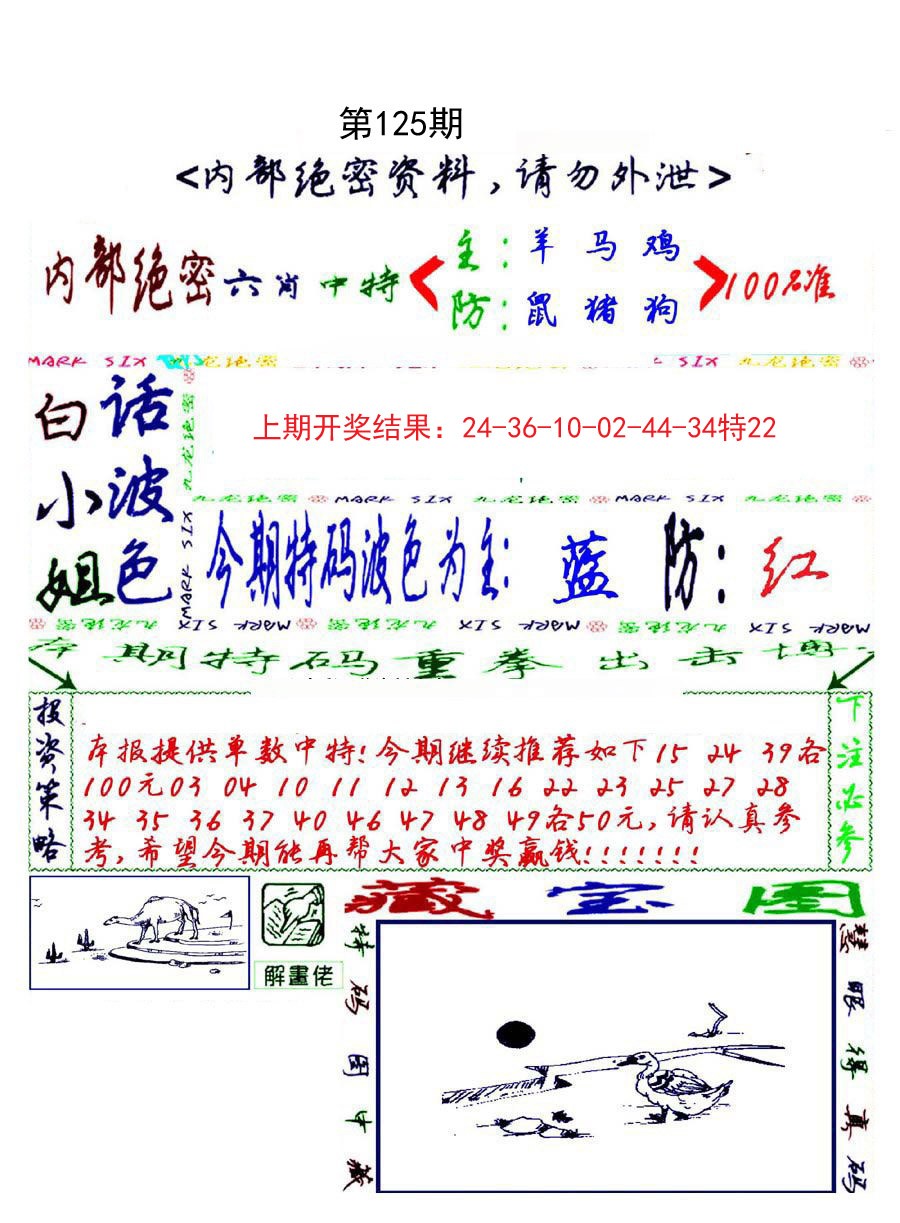 第125期
<内部绝密资料,请勿外泄>
内部绝密六肖中特
主:羊 马 鸡
防:鼠 猪 狗
100%准
MARK SIX 九龙绝密 MARK SIX 九龙绝密
白话
小波
姐色
九龙绝密 MARK SIX
上期开奖结果：24-36-10-02-44-34特22
九龙绝密 MARK SIX 九龙绝密 MARK SIX 九龙绝密
今期特码波色为主: 蓝 防: 红
九龙绝密 MARK SIX 九龙绝密 MARK SIX 九龙绝密 MARK SIX
本期特码重拳出击博
投资策略
本报提供单数中特!今期继续推荐如下15 24 39各
100元03 04 10 11 12 13 16 22 23 25 27 28
34 35 36 37 40 46 47 48 49各50元,请认真参
考,希望今期能再帮大家中奖赢钱!!!!!!!
下注必参
解畫佬
藏宝图
特码图中藏
慧眼得真码